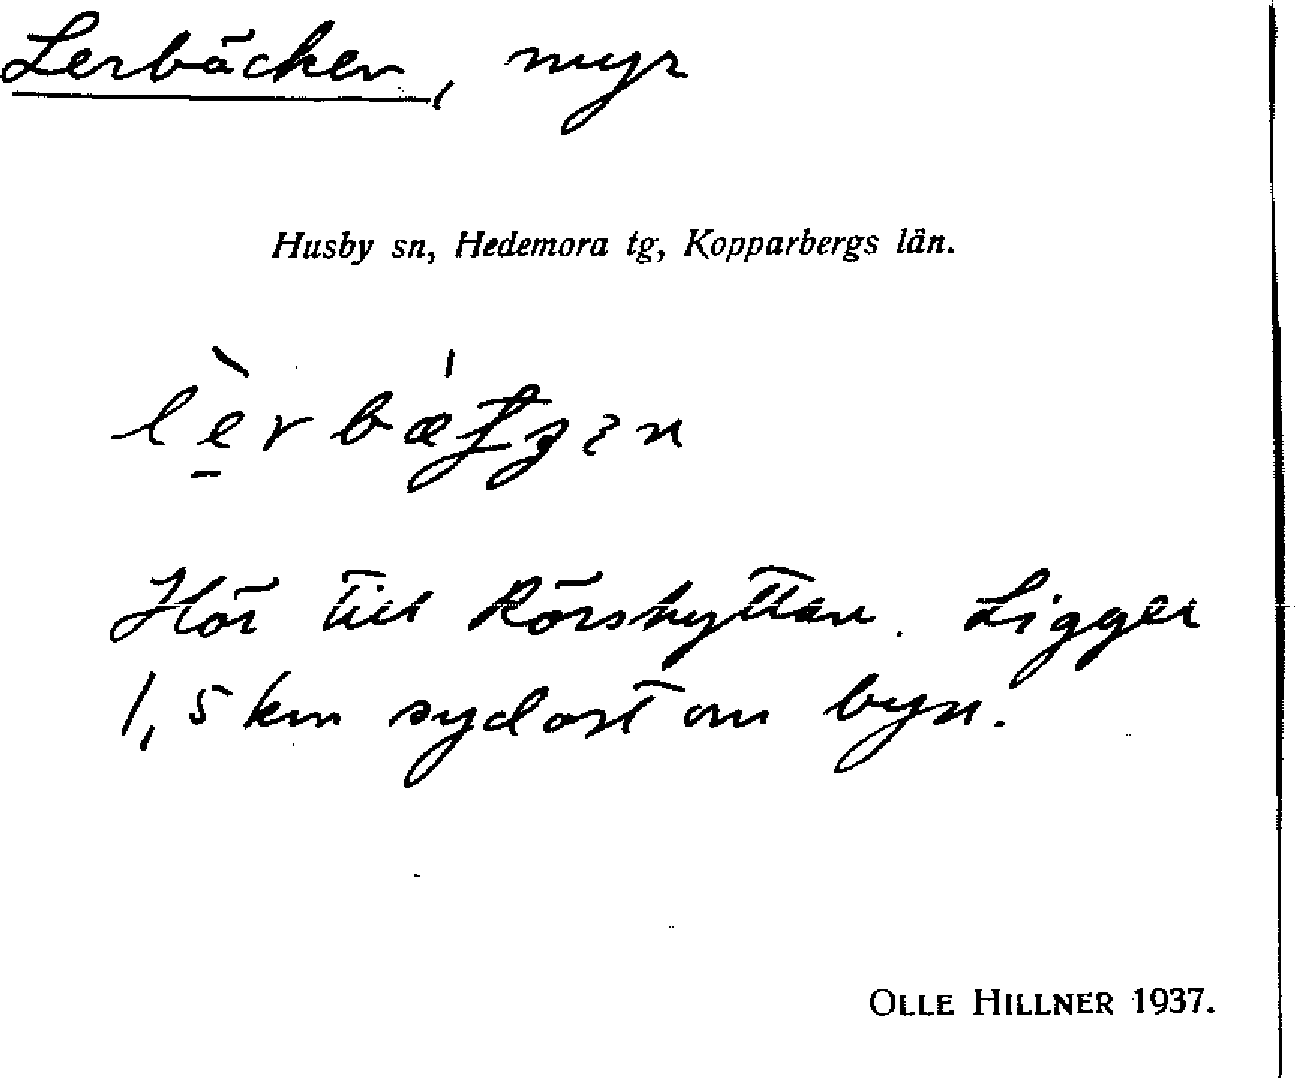 Lerbäcken, myr
Husby sn, Hedemora tg, Kopparbergs län.
Hör till Rörshyttan. Ligger
1,5 km sydost om byn.
OLLE HILLNER 1937.